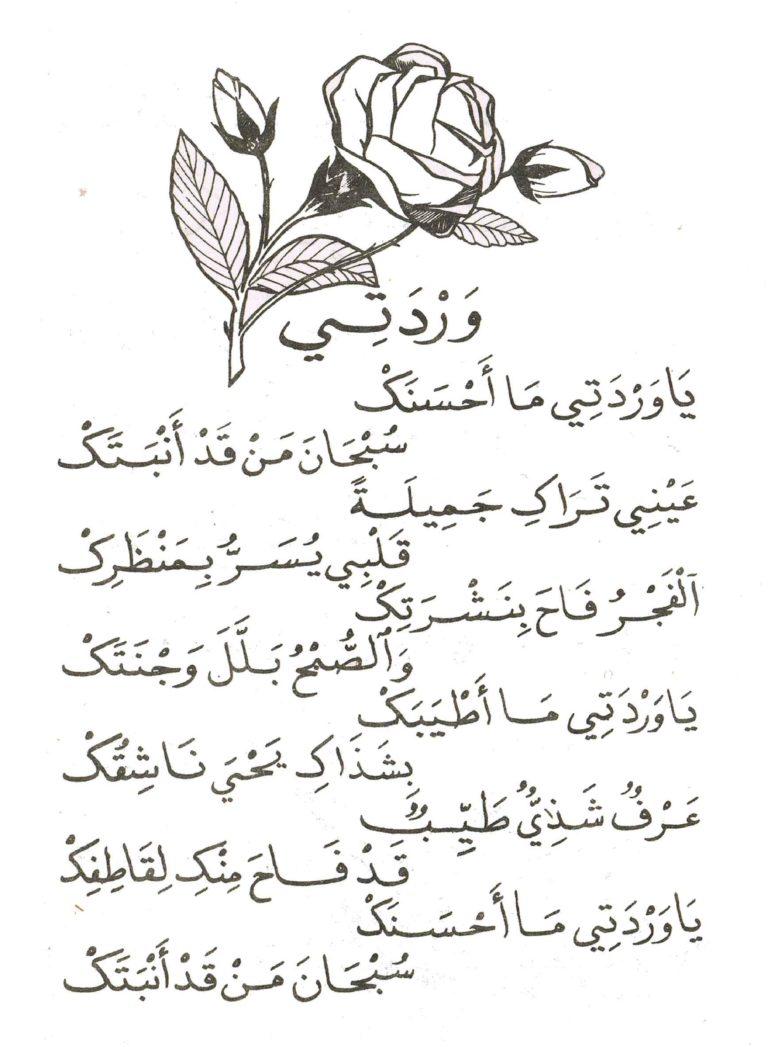 وَرْدَتِي
يَا وَرْدَتِي مَا أَحْسَنَكْ
سُبْحَانَ مَنْ قَدْ أَنْبَتَكْ
عَيْنِي تَرَاكِ جَمِيلَةً
قَلْبِي يُسَرُّ بِمَنْظَرِكْ
اَلْفَجْرُ فَاحَ بِنَشْرَتِكْ
وَٱلصُّبْحُ بَلَّلَ وَجْنَتَكْ
يَا وَرْدَتِي مَا أَطْيَبَكْ
بِشَذَاكِ يَحْيَي نَاشِقُكْ
عَرْفٌ شَذِيٌّ طَيِّبٌ
قَدْ فَاحَ مِنْكِ لِقَاطِفِكْ
يَا وَرْدَتِي مَا أَحْسَنَكْ
سُبْحَانَ مَنْ قَدْ أَنْبَتَكْ